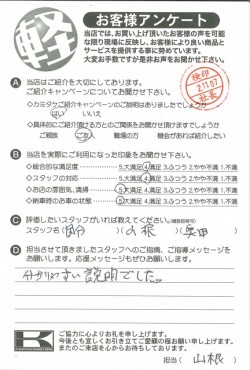 軽
お客様アンケート
当店では、お買い上げ頂いたお客様の声を可能
な限り現場に反映し、お客様により良い商品と
サービスを提供する事に努めています。
大変お手数ですが是非お声をお聞かせ下さい。
A 当店はご紹介を大切にしております。
ご紹介キャンペーンについてお聞かせ下さい。
○カミタケご紹介キャンペーンのご説明はありましたでしょうか
はい いいえ
○具体的にご紹介頂ける方とのご関係をお聞かせ頂けますでしょうか
ご親戚 ご友人 職場の方 機会があれば紹介したい
検印
2.11.07
B 当店を実際にご利用になった印象をお聞かせ下さい。
○総合的な満足度 5.大満足 4.満足 3.ふつう 2.やや不満 1.不満
○スタッフの対応 5.大満足 4.満足 3.ふつう 2.やや不満 1.不満
○お店の雰囲気、清掃 5.大満足 4.満足 3.ふつう 2.やや不満 1.不満
○納車時のお車の状態 5.大満足 4.満足 3.ふつう 2.やや不満 1.不満
C 評価したいスタッフがいれば教えてください。(複数回答可)
スタッフ名( )(山根)( )
D 担当させて頂きましたスタッフへのご指摘、ご指導メッセージを
お願いします。応援メッセージもぜひお願いします。
分かりやすい説明でした。
K
ご協力に心よりお礼を申し上げます。
今後とも宜しくお引き立てご愛顧の程お願い申し上げます。
またのご来店を心からお待ちしております。
担当(山根)